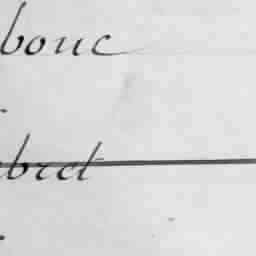 bouc
bret